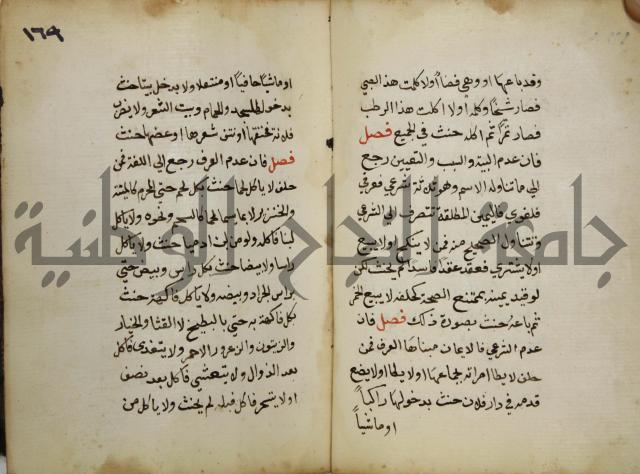 وقد باعها او وهي فضا او لا كلمت هذا الصبي
فصار شيخا وكلمه او لا اكلت هذا الرطب
فصار تمرا ثم اكله حنث في الجميع فصل
فان عدم النية والسبب والتعيين رجع
الي ما تناوله الاسم وهو ثلاثة شرعي فعرفي
فلغوي فاليمين المطلقة تنصرف الي الشرعي
وتتناول الصحيح منه فمن حلف لا ينكح او لا يبيع
او لا يشتري فعقد عقدا فاسدا لم يحنث لكن
لو قيد يمينه بممتنع الصحة كحلفه لا يبيع الخمر
ثم باعه حنث بصورة ذلك فصل فان
عدم الشرعي فالايمان مبناها العرف فمن
حلف لا يطا امراته حنث بجماعها او لا يطا او لا يضع
قدمه في دار فلان حنث بدخولها راكبا
او ماشيا
١٦٩
او ماشيا حافيا او منتعلا ولا يدخل بيتا حنث
بدخول المسجد والحمام وبيت الشعر ولا يضرب
فلانة فخنقها او نتف شعرها او عضها حنث
فصل فان عدم العرف رجع الي اللغة فمن
حلف لا ياكل لحما حنث بكل لحم حتي المحرم كالميتة
والخنزير لا بما يسمي لحما كالمخ ونحوه ولا ياكل
لبنا فاكله ولو من لبن ادمية حنث ولا ياكل
راسا ولا بيضا حنث بكل راس وبيض حتي
براس الجراد وبيضه ولا ياكل فاكهة حنث
بكل فاكهة حتي بالبطيخ لا القثا والخيار
والزيتون والزعرور الاحمر ولا يتغدي فاكل
بعد الزوال او لا يتعشي فاكل بعد نصف
او لا يتسحر فاكل قبله لم يحنث ولا ياكل من
جامعة النجاح الوطنية